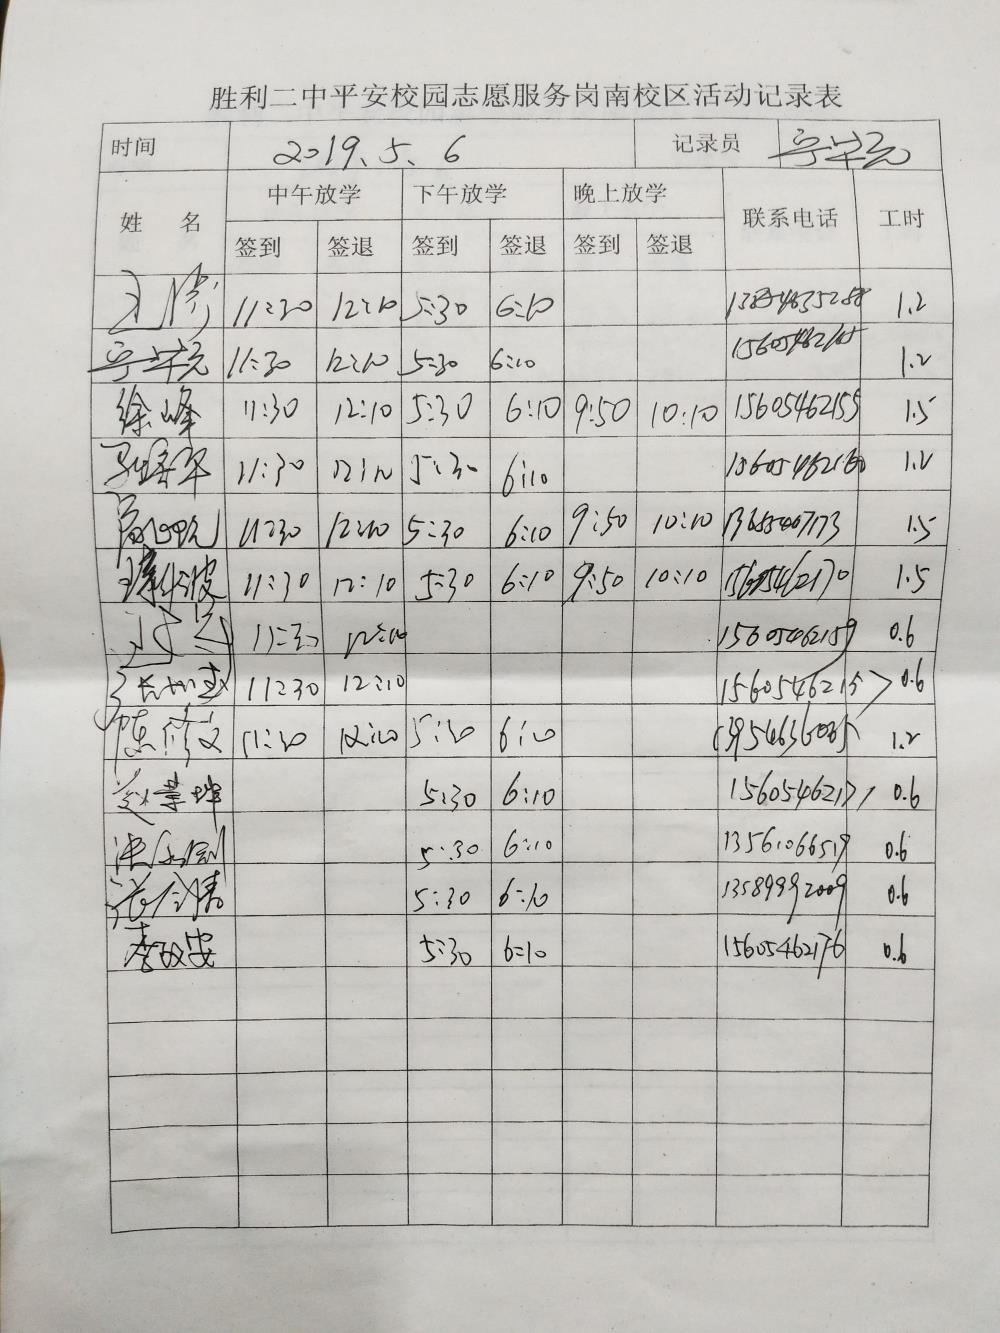 胜利二中平安校园志愿服务岗南校区活动记录表
时间 2019.5.6 记录员
姓 名 中午放学 下午放学 晚上放学 联系电话 工时
签到 签退 签到 签退 签到 签退
11:30 12:10 5:30 6:10 1.2
11:30 12:10 5:30 6:10 1.2
徐峰 11:30 12:10 5:30 6:10 9:50 10:10 15605462155 1.5
11:30 12:10 5:30 6:10 15605462160 1.2
11:30 12:10 5:30 6:10 9:50 10:10 1.5
11:30 12:10 5:30 6:10 9:50 10:10 15605462170 1.5
11:30 12:10 15605462159 0.6
11:30 12:10 0.6
陈修文 11:30 12:10 5:30 6:10 1.2
5:30 6:10 15605462171 0.6
5:30 6:10 13561066519 0.6
5:30 6:10 13589992009 0.6
李政安 5:30 6:10 15605462176 0.6